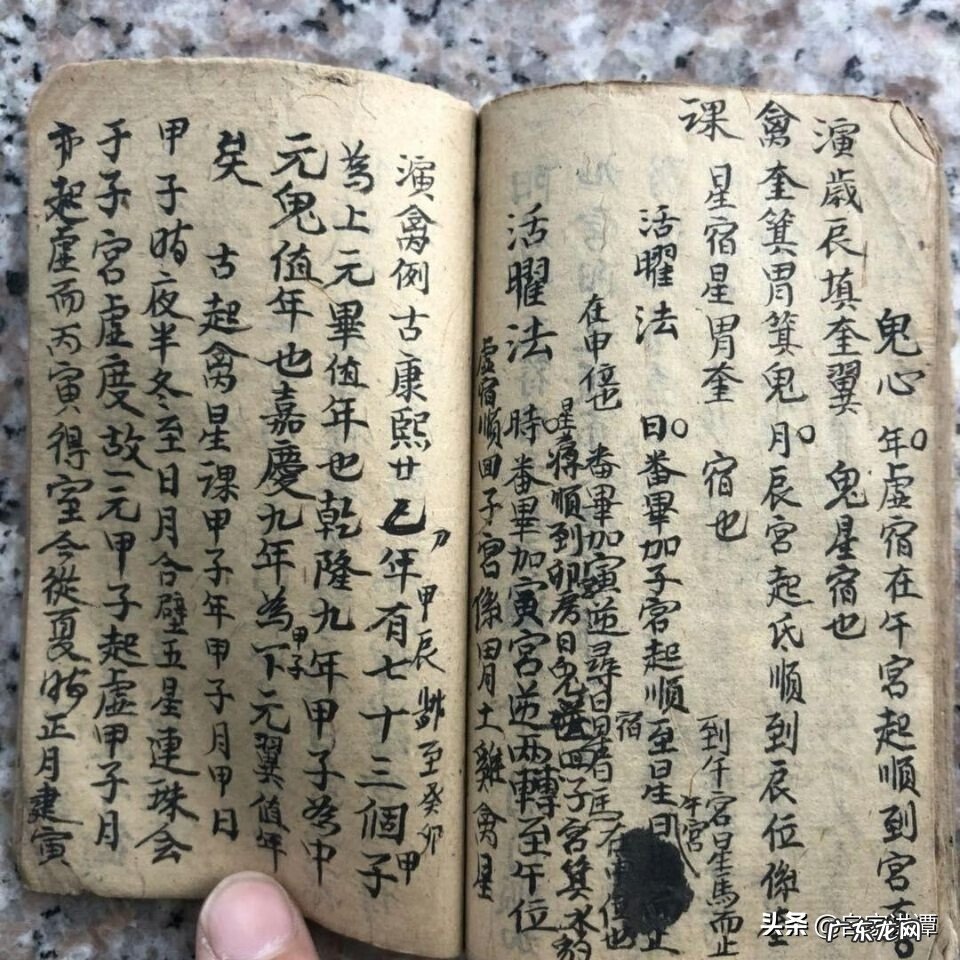 鬼心
年虛宿在午宮起順到宮
演歲辰填奎翼
鬼星宿也
禽奎箕胃箕鬼
月辰宮起氐順到辰位係
課
星宿星胃奎
宿也
到午宮星馬而止
活曜法
日番畢加子宮起順至星日
午宮
止
在申位也
番畢加寅逆尋
宿
活曜法
時番畢加寅宮逆两轉至午位
虛宿順回子宮係胃土雞禽星
演禽例古康熙廿乙年有七十三個甲子
甲辰
至癸卯
為上元畢值年也乾隆九年甲子為中
元鬼值年也嘉慶九年為下元翼值年
甲子
矣
古起禽星課甲子年甲子月甲日
甲子時夜半冬至日月合璧五星連珠会
于子宮虛度故一元甲子起虛甲子月
亦起虛而丙寅得室今從夏時正月建寅
头条
广东龙网